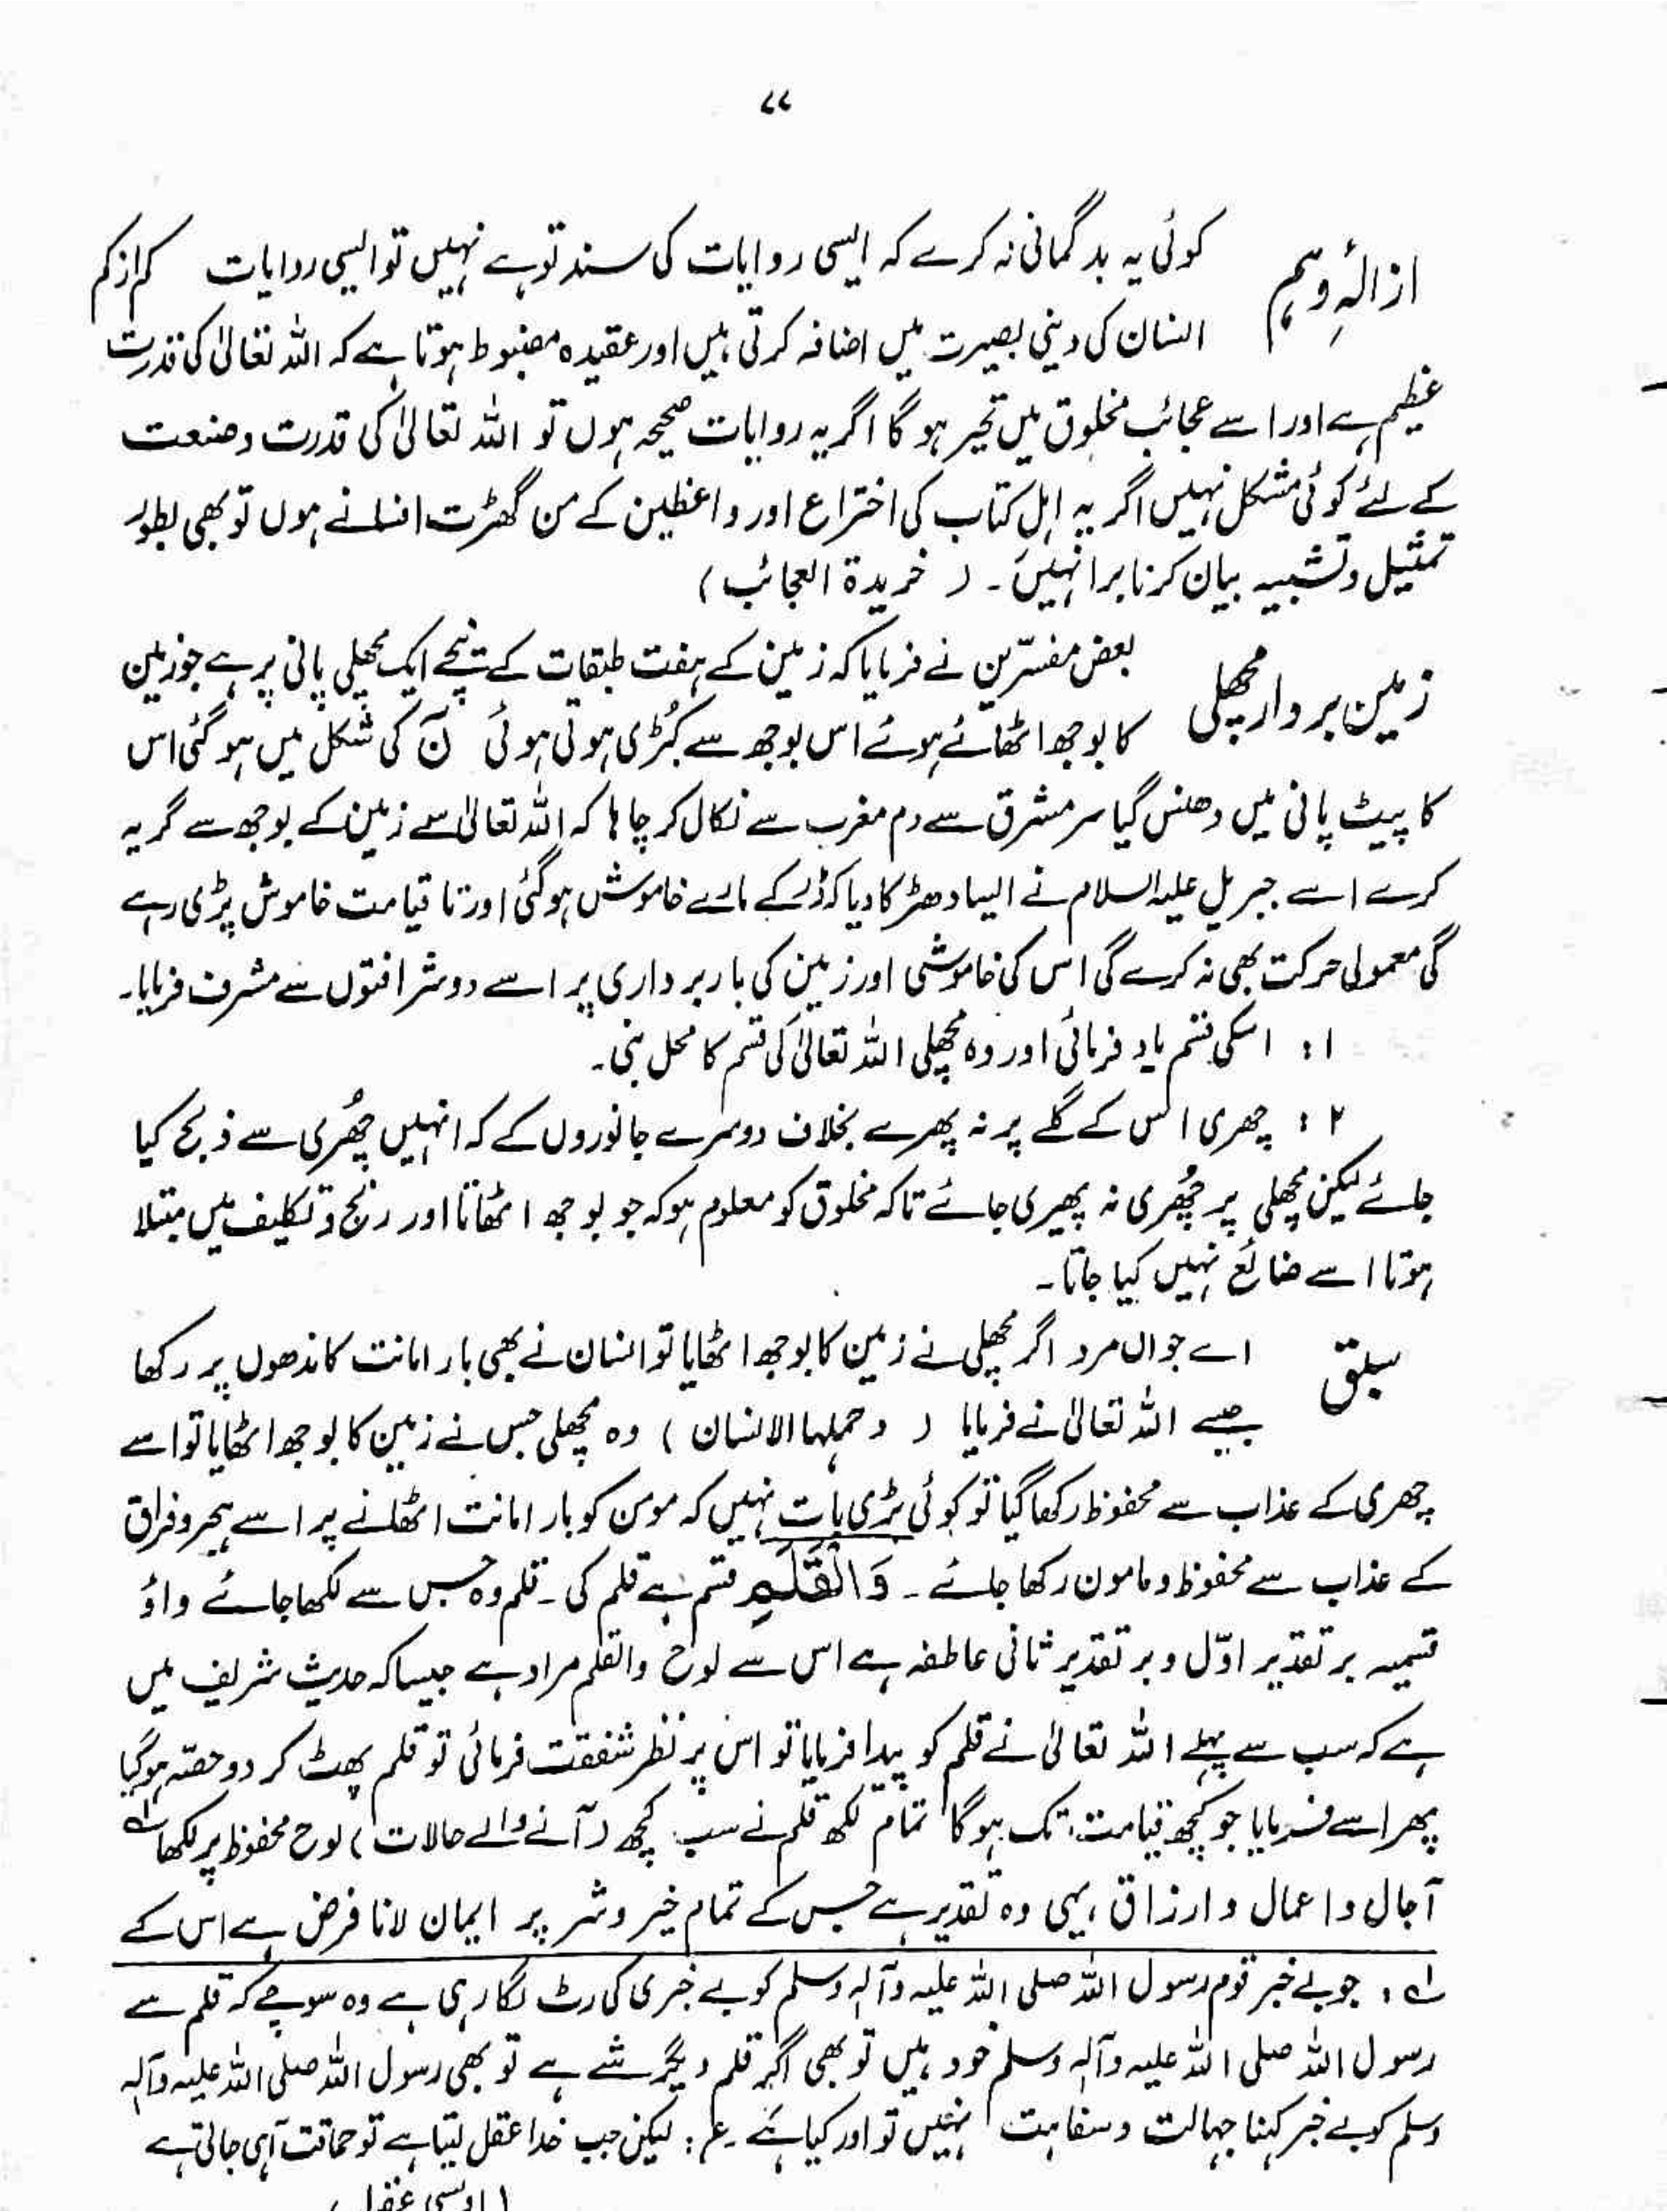 ۷۷
ازالۂ وہم
کوئی یہ بدگمانی نہ کرے کہ ایسی روایات کی سند تو ہے نہیں تو ایسی روایات کم از کم
انسان کی دینی بصیرت میں اضافہ کرتی ہیں اور عقیدہ مضبوط ہوتا ہے کہ اللہ تعالیٰ کی قدرت
عظیم ہے اور اسے عجائب مخلوق میں تحیر ہو گا اگر یہ روایات صحیح ہوں تو اللہ تعالیٰ کی قدرت وصنعت
کے لئے کوئی مشکل نہیں اگر یہ اہل کتاب کی اختراع اور واعظین کے من گھڑت افسانے ہوں تو بھی بطور
تمثیل وتشبیہ بیان کرنا برا نہیں۔ ( خریدۃ العجائب )
زمین بردار مچھلی
بعض مفسّرین نے فرمایا کہ زمین کے ہفت طبقات کے نیچے ایک مچھلی پانی پر ہے جو زمین
کا بوجھ اٹھائے ہوئے اس بوجھ سے کبُڑی ہوتی ہوئی نٓ کی شکل میں ہو گئی اس
کا پیٹ پانی میں دھنس گیا سر مشرق سے دم مغرب سے نکال کر چاہا کہ اللہ تعالیٰ سے زمین کے بوجھ سے گریہ
کرے اسے جبریل علیہ السلام نے ایسا دھڑکا دیا کہ ڈر کے مارے خاموش ہو گئی اور تا قیامت خاموش پڑی رہے
گی معمولی حرکت بھی نہ کرے گی اس کی خاموشی اور زمین کی باربرداری پر اسے دو شرافتوں سے مشرف فرمایا۔
۱ : اسکی قسم یاد فرمائی اور وہ مچھلی اللہ تعالیٰ کی قسم کا محل بنی۔
۲ : چھری اس کے گلے پر نہ پھرے بخلاف دوسرے جانوروں کے کہ انہیں چھُری سے ذبح کیا
جائے لیکن مچھلی پر چھُری نہ پھیری جائے تاکہ مخلوق کو معلوم ہو کہ جو بوجھ اٹھاتا اور رنج وتکلیف میں مبتلا
ہوتا اسے ضائع نہیں کیا جاتا۔
سبق
اے جواں مرد اگر مچھلی نے زمین کا بوجھ اٹھایا تو انسان نے بھی بار امانت کاندھوں پر رکھا
جسے اللہ تعالیٰ نے فرمایا ( وحملہا الانسان ) وہ مچھلی جس نے زمین کا بوجھ اٹھایا تو اسے
چھری کے عذاب سے محفوظ رکھا گیا تو کوئی بڑی بات نہیں کہ مومن کو بار امانت اٹھانے پر اسے ہجر وفراق
کے عذاب سے محفوظ ومامون رکھا جائے۔ وَالْقَلَمِ قسم ہے قلم کی۔ قلم وہ جس سے لکھا جائے واؤ
قسمیہ بر تقدیر اوّل و بر تقدیر ثانی عاطفہ ہے اس سے لوح والقلم مراد ہے جیسا کہ حدیث شریف میں
ہے کہ سب سے پہلے اللہ تعالیٰ نے قلم کو پیدا فرمایا تو اس پر نظر شفقت فرمائی تو قلم پھٹ کر دو حصّہ ہو گیا
پھر اسے فرمایا جو کچھ قیامت تک ہو گا تمام لکھ قلم نے سب کچھ ( آنے والے حالات ) لوح محفوظ پر لکھا ؎۱
آجال واعمال وارزاق، یہی وہ تقدیر ہے جس کے تمام خیر وشر پر ایمان لانا فرض ہے اس کے
؎۱ : جو بے خبر قوم رسول اللہ صلی اللہ علیہ وآلہٖ وسلم کو بے خبری کی رٹ لگا رہی ہے وہ سوچے کہ قلم سے
رسول اللہ صلی اللہ علیہ وآلہٖ وسلم خود ہیں تو بھی اگر قلم دیگر شے ہے تو بھی رسول اللہ صلی اللہ علیہ وآلہ
وسلم کو بے خبر کہنا جہالت وسفاہت نہیں تو اور کیا ہے۔ ع : لیکن جب خدا عقل لیتا ہے تو حماقت آہی جاتی ہے